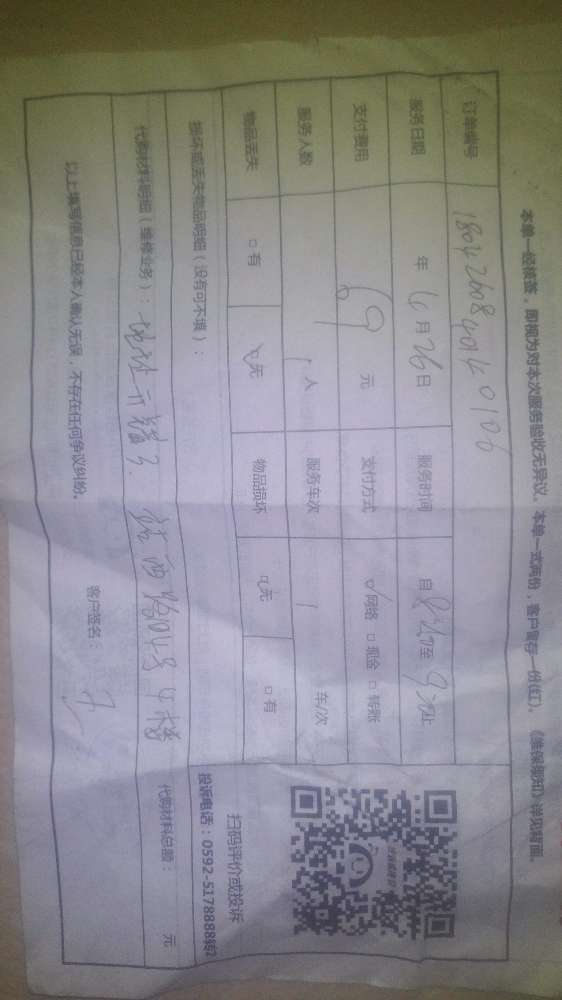 本单一经核签，即视为对本次服务验收无异议。本单一式两份，客户留存一份(红)。《维保须知》详见背面。
订单编号
服务日期 年 4月26日 服务时间 自 至 止
支付费用 69 元 支付方式 ☑网络 □现金 □转账
服务人数 1 人 服务车次 1 车/次
物品丢失 □有 ☑无 物品损坏 ☑无 □有
扫码评价或投诉
投诉电话：0592-5178888转2
损坏或丢失物品明细（没有可不填）：
代购材料明细（维修业务）： 地址 代购材料总额： 元
以上填写信息已经本人确认无误，不存在任何争议纠纷。
客户签名：